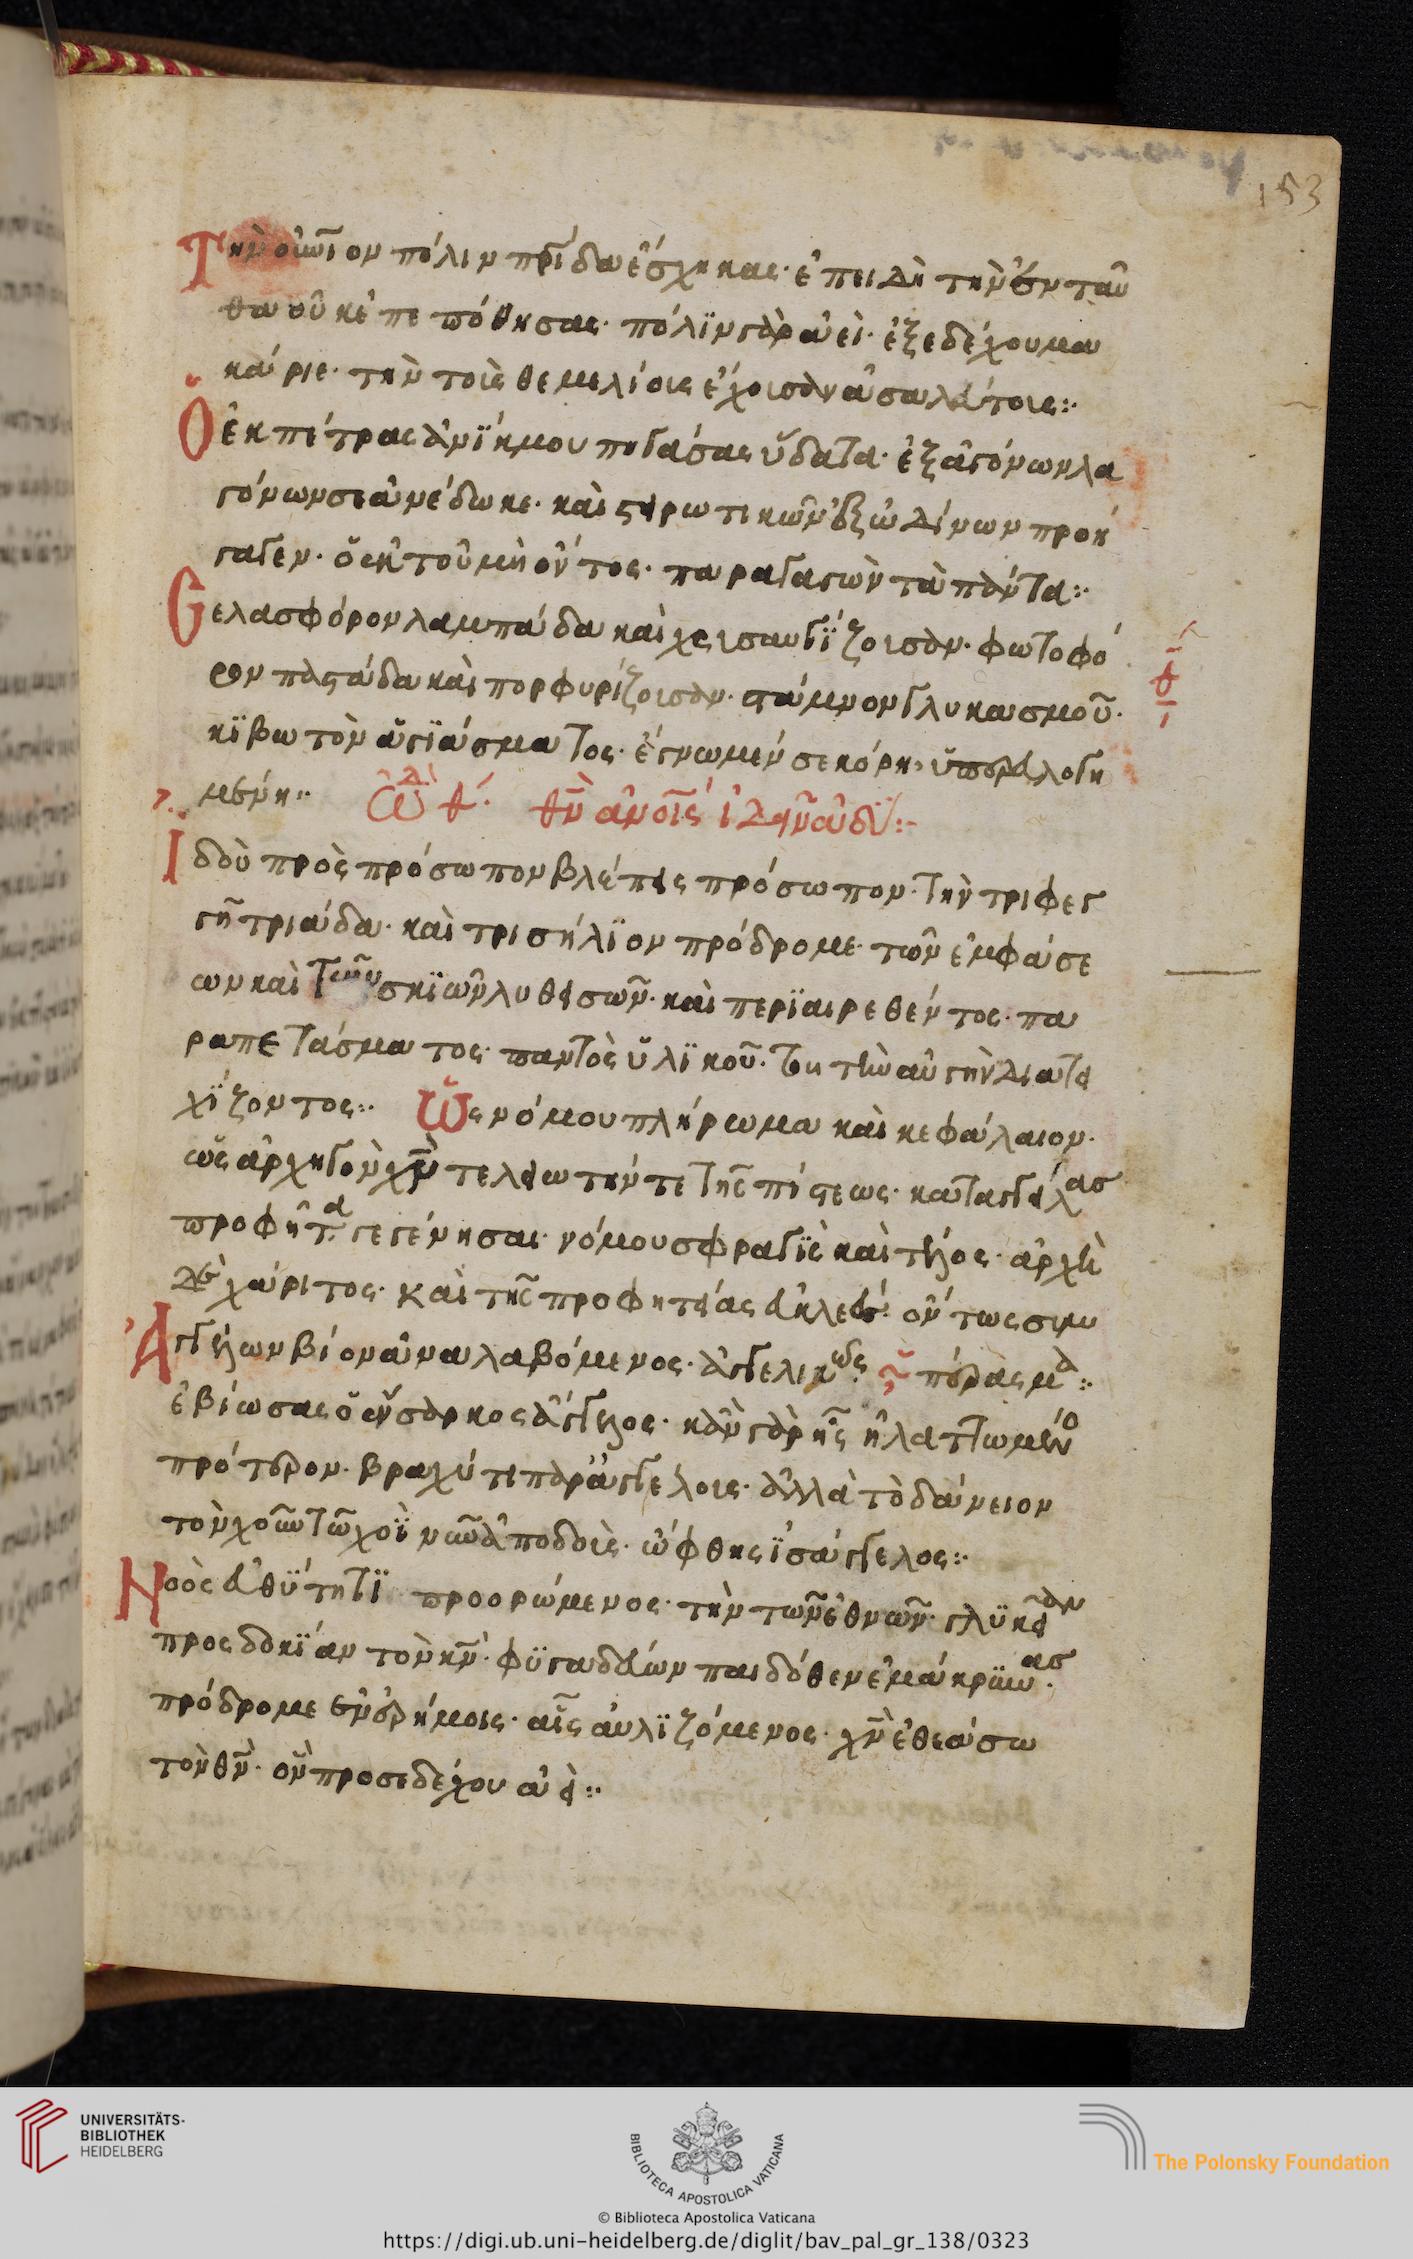 153
Τὴν οἰωῖον πόλιν πρίδα ἔσχηκας· ἐπειδὴ τὴν ἐνταῦ
θα οὐκ ἐπεπόθησας· πόλϊν γὰρ ἀεὶ· ἐξεδέχου μα
κάριε· τὴν τοῖς θεμελίοις ἔχουσαν ἀσαλεύτοις:·
Ὁ ἐκ πέτρας ἀνϊκμου πηγάσας ὕδατα· ἐξ ἀγόνων λα
γόνων σε ἀνέδωκε· καὶ στειρωτικῶν ἐξ ὠδίνων προή
γαγεν· ὁ ἐκ τοῦ μὴ ὄντος· παραγαγὼν τὰ πάντα:·
Σελασφόρον λαμπάδα καὶ χρισαυγϊζουσαν· φωτοφό
ρον παστάδα καὶ πορφυρίζουσαν· στάμνον γλυκασμοῦ·
κϊβωτὸν ἁγϊάσματος· ἔγνωμέν σε κόρη· ὑπερευλογη
μένη:·
Ἰδοὺ πρὸς πρόσωπον βλέπεις πρόσωπον· τὴν τριφεγ
γῆ τριάδα· καὶ τρισήλϊον πρόδρομε· τῶν ἐμφάσε
ων καὶ τῶν σκϊῶν λυθεισῶν· καὶ περϊαιρεθέντος· πα
ραπετάσματος παντὸς ὑλϊκοῦ· τοι τὴν αὐγὴν διατει
χϊζοντος:· Ὡς νόμου πλήρωμα καὶ κεφάλαιον·
ὡς ἀρχηγὸν χν τελειωτήν τε τῆς πίστεως· καταγγείλας
προφῆτα γεγένησαι· νόμου σφραγϊς καὶ τέλος· ἀρχὴ
δὲ χάριτος· καὶ τῆς προφητείας
Ἀγγέλων βίον ἀναλαβόμενος· ἀγγελικῶς
ἐβίωσας ὁ ἔνσαρκος ἄγγελος· κἂν γὰρ ἧς ἠλαττωμένος
πρότερον· βραχύ τι παρ' ἀγγέλοις· ἀλλὰ τὸ δάνειον
τὸν χοῦν τῶ χοϊ νῶ ἀποδοὺς· ὤφθης ϊσάγγελος:·
Νοὸς εὐθϋτητϊ προορώμενος· τὴν τῶν ἐθνῶν· γλϋκεῖαν
προσδοκϊαν τὸν κν· φϋγαδεύων παιδόθεν ἐμάκρϋνας·
πρόδρομε ἐν ἐρήμοις· αἷς αὐλϊζόμενος· χν ἐθεάσω
τὸν θν· ὃν προσεδέχου ἀεὶ:·
UNIVERSITÄTS-
BIBLIOTHEK
HEIDELBERG
BIBLIOTECA APOSTOLICA VATICANA
The Polonsky Foundation
© Biblioteca Apostolica Vaticana
https://digi.ub.uni-heidelberg.de/diglit/bav_pal_gr_138/0323